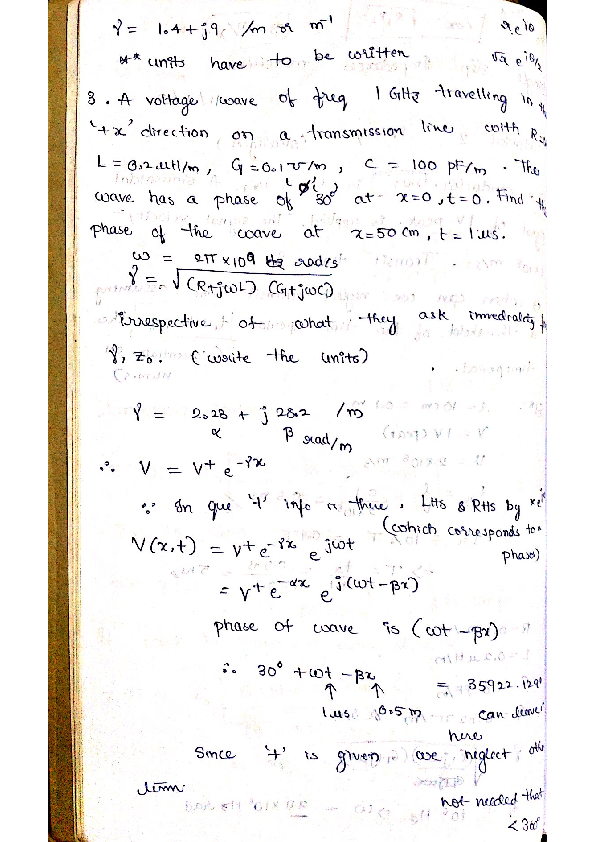 γ = 1.4 + j9 /m or m⁻¹
** units have to be written
3. A voltage wave of freq 1 GHz travelling in
'+x' direction on a transmission line with
L = 0.2 uH/m, G = 0.1 ℧/m, C = 100 pF/m. The
wave has a phase of 30° at x=0, t=0. Find
phase of the wave at x=50 cm, t = 1 us.
ω = 2π × 10⁹ rad/s
γ = √(R+jωL) (G+jωC)
irrespective of what they ask immediately
γ, z₀. (write the units)
γ = 2.28 + j 28.2 /m
α β rad/m
∴ V = V⁺ e^-γx
∵ In que 't' info is there, LHS & RHS by
(which corresponds to
phase)
V(x,t) = V⁺ e^-γx e^jωt
= V⁺ e^-αx e^j(ωt - βx)
phase of wave is (ωt - βx)
∴ 30° + ωt - βx = 35922.
↑ ↑
1us 0.5 m can leave
here
Since '+' is given, we neglect
term
not needed that
< 30°